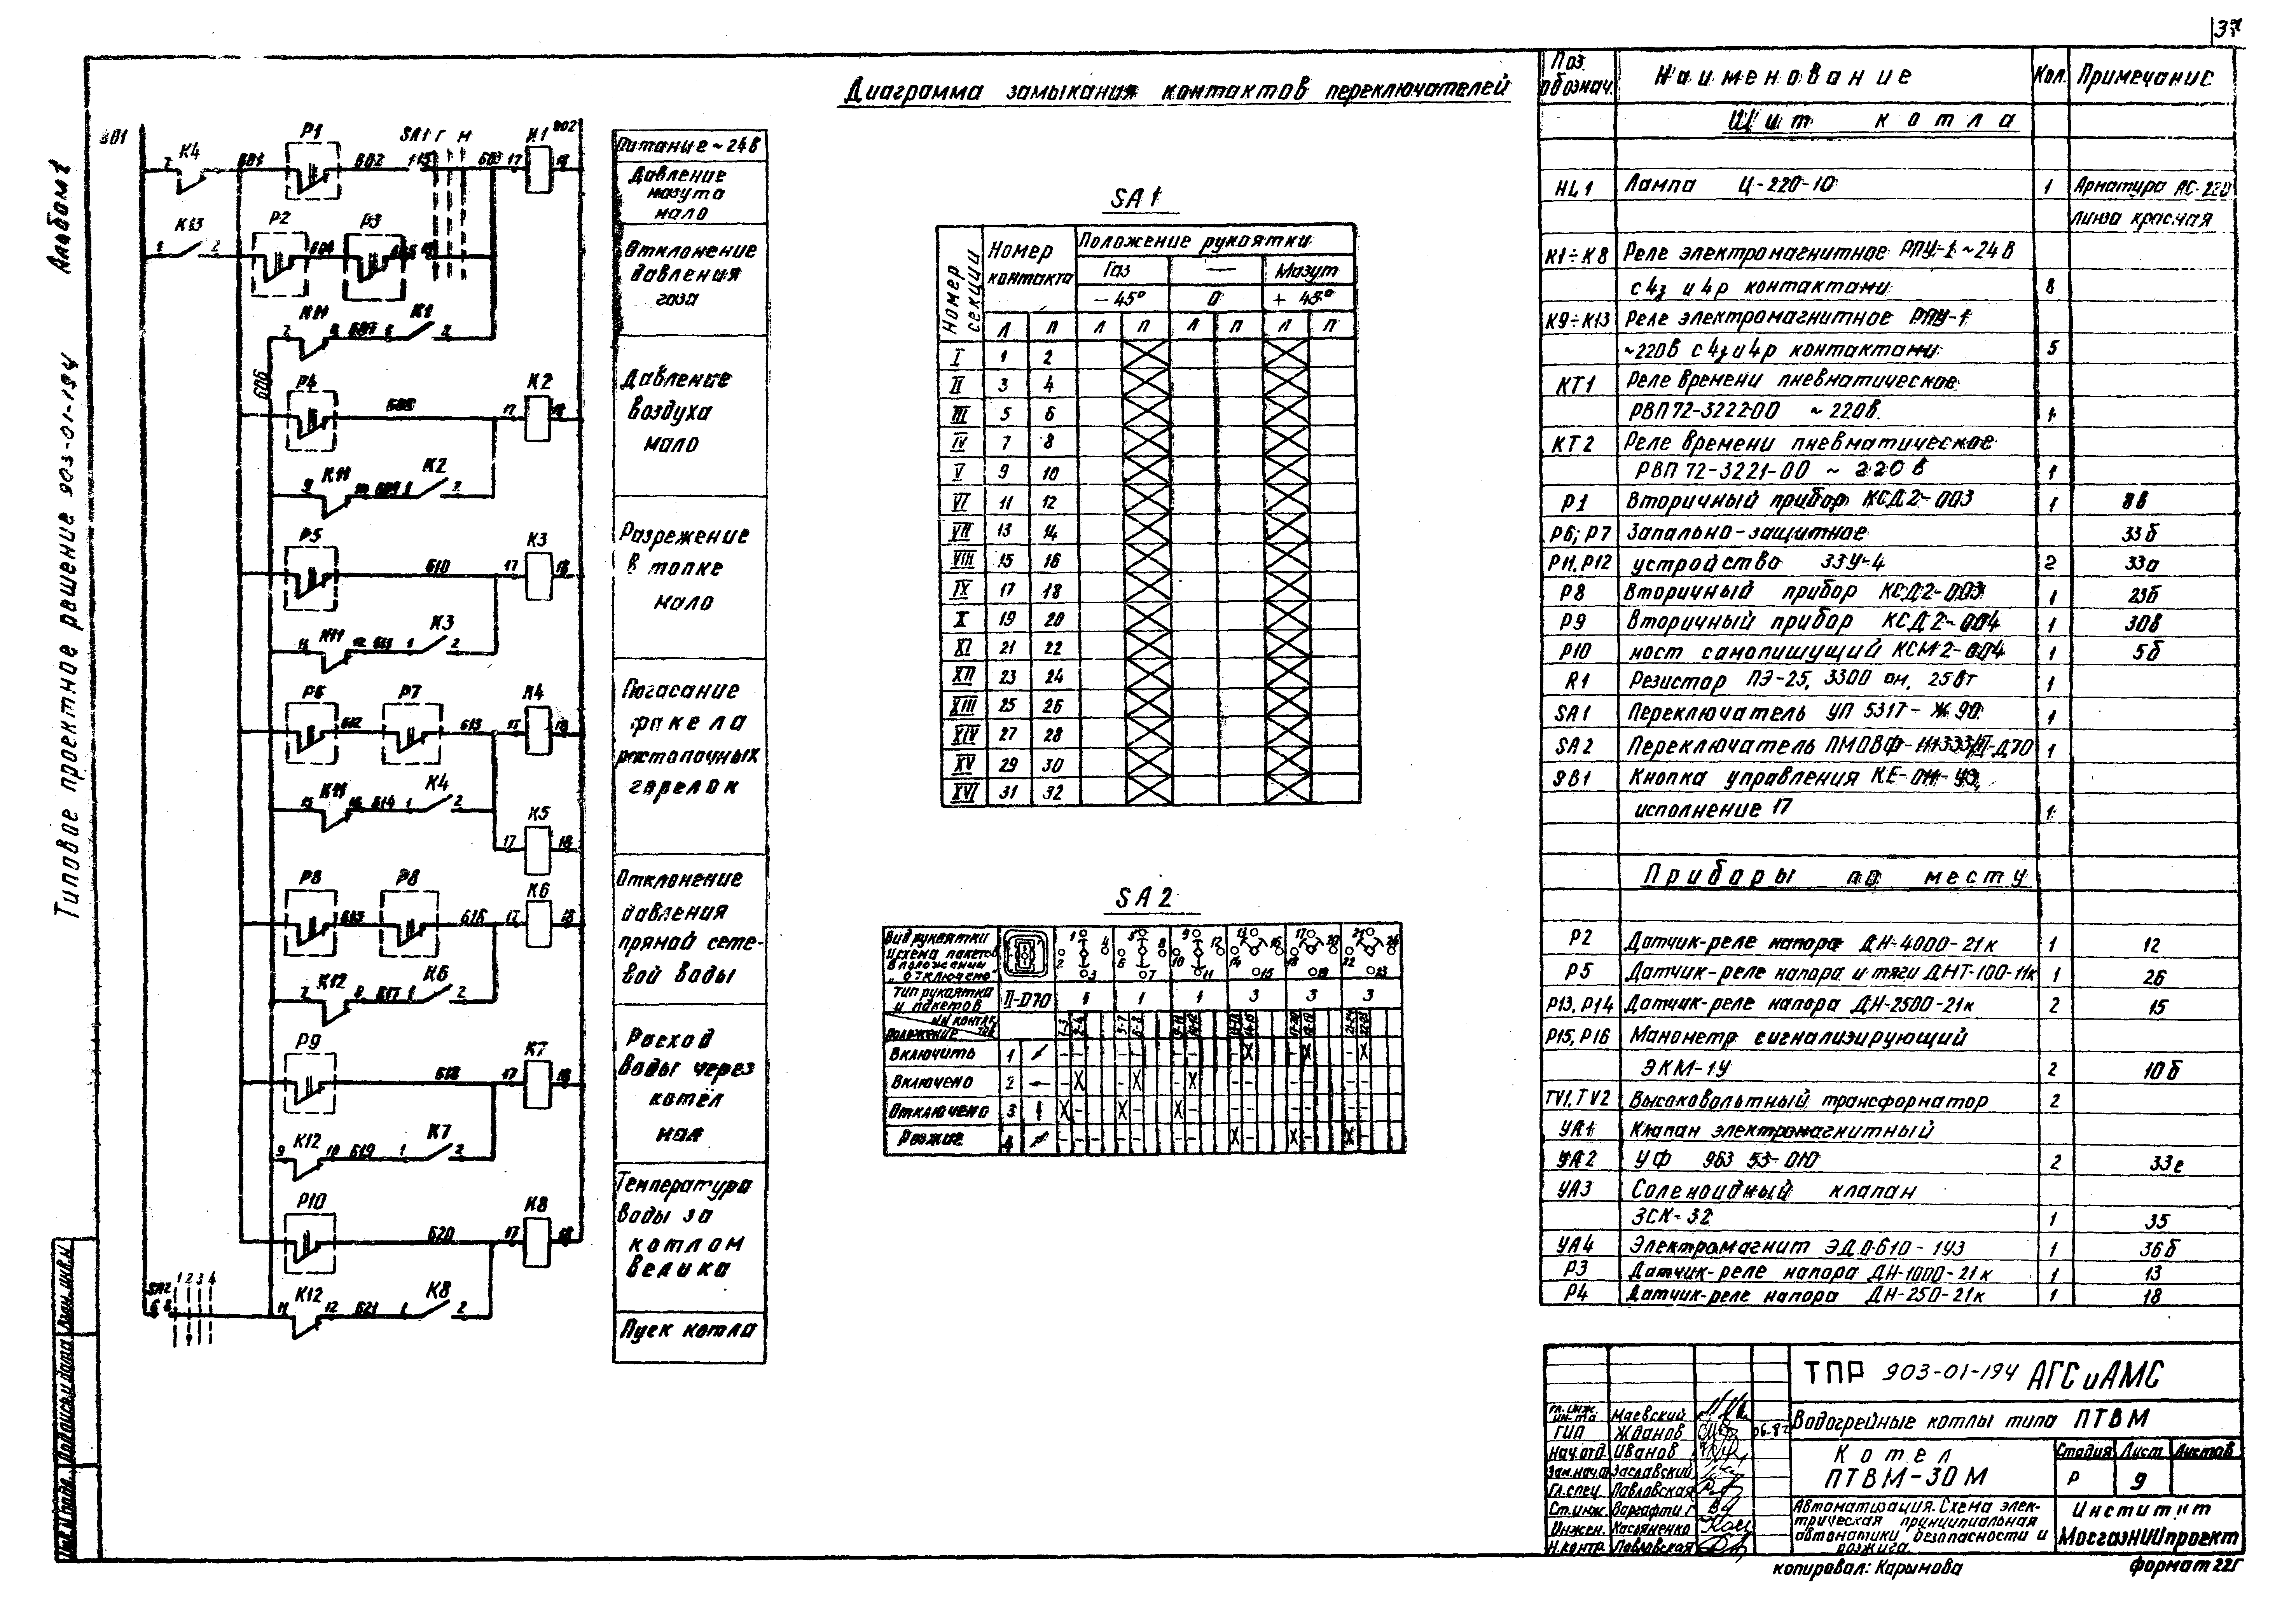 37
Альбом 1
Типовое проектное решение 903-01-194
Диаграмма замыкания контактов переключателей
801
К4
Р1
SA1 Г М
К1
802
7
601
802
603
17
18
К13
Р2
Р3
1
2
604
К11
К1
7
8
607
2
606
Р4
К2
608
17
18
К11
К2
9
10
609
1
2
Р5
К3
610
17
18
К11
К3
11
12
611
1
2
Р6
Р7
К4
612
613
18
К11
К4
15
16
614
1
2
К5
17
18
Р8
Р8
К6
615
616
17
18
К12
К6
7
8
617
1
2
Р9
К7
618
17
18
К12
К7
9
10
619
1
2
Р10
К8
620
17
18
SA2
1 2 3 4
6 8
К12
К8
11
12
621
1
2
Питание ~24В
Давление
мазута
мало
Отклонение
давления
газа
Давление
воздуха
мало
Разрежение
в топке
мало
Погасание
факела
растопочных
горелок
Отклонение
давления
прямой сете-
вой воды
Расход
воды через
котёл
мал
Температура
воды за
котлом
велика
Пуск котла
SA1
Номер секции
Номер контакта
Положение рукоятки
Газ
—
Мазут
− 45°
0
+ 45°
Л П Л П Л П Л П
I 1 2
II 3 4
III 5 6
IV 7 8
V 9 10
VI 11 12
VII 13 14
VIII 15 16
IX 17 18
X 19 20
XI 21 22
XII 23 24
XIII 25 26
XIV 27 28
XV 29 30
XVI 31 32
SA2
Вид рукоятки
и схема пакетов
в положении
„отключено"
Тип рукоятки
и пакетов
II-D70 1 1 1 3 3 3
NN контак
тов
Положение
Включить 1
Включено 2
Отключено 3
Розжиг 4
Поз. обознач.
Наименование
Кол.
Примечание
Щит котла
HL1 Лампа Ц-220-10 1 Арматура АС-220
линза красная
К1÷К8 Реле электромагнитное РПУ-1 ~24В
с 4з и 4р контактами 8
К9÷К13 Реле электромагнитное РПУ-1
~220в с 4з и 4р контактами 5
КТ1 Реле времени пневматическое
РВП72-3222-00 ~ 220в. 1
КТ2 Реле времени пневматическое
РВП 72-3221-00 ~ 220 в 1
Р1 Вторичный прибор КСД2-003 1 8в
Р6; Р7 Запально-защитное 33б
Р11, Р12 устройство ЗЗУ-4 2 33а
Р8 Вторичный прибор КСД2-003 1 23б
Р9 Вторичный прибор КСД2-004 1 30в
Р10 мост самопишущий КСМ2-004 1 5б
R1 Резистор ПЭ-25, 3300 ом, 25Вт 1
SA1 Переключатель УП 5317-Ж 90 1
SA2 Переключатель ПМОВФ-111333/II-Д70 1
SB1 Кнопка управления КЕ-011-У3,
исполнение 17 1
Приборы по месту
Р2 Датчик-реле напора ДН-4000-21к 1 12
Р5 Датчик-реле напора и тяги ДНТ-100-11к 1 26
Р13, Р14 Датчик-реле напора ДН-2500-21к 2 15
Р15, Р16 Манометр сигнализирующий
ЭКМ-1У 2 10б
TV1, TV2 Высоковольтный трансформатор 2
УА1 Клапан электромагнитный
УА2 УФ 963 53-010 2 33е
УА3 Соленоидный клапан
ЗСК-32 1 35
УА4 Электромагнит ЭД 0610-1У3 1 36б
Р3 Датчик-реле напора ДН-1000-21к 1 13
Р4 Датчик-реле напора ДН-250-21к 1 18
ТПР 903-01-194 АГС и АМС
Водогрейные котлы типа ПТВМ
Котел
ПТВМ-30М
Стадия Лист Листов
Р 9
Автоматизация. Схема элек-
трическая принципиальная
автоматики безопасности и
розжига.
Институт
МосгазНИИпроект
Гл. инж. ин-та Маевский
ГИП Жданов
Нач. отд. Иванов
Зам. нач. о Заславский
Гл. спец. Павловская
Ст. инж. Варгафтиг
Инжен. Касьяненко
Н. контр. Павловская
копировал: Карымова
формат 22Г
Инв. № подл. Подпись и дата Взам. инв. №